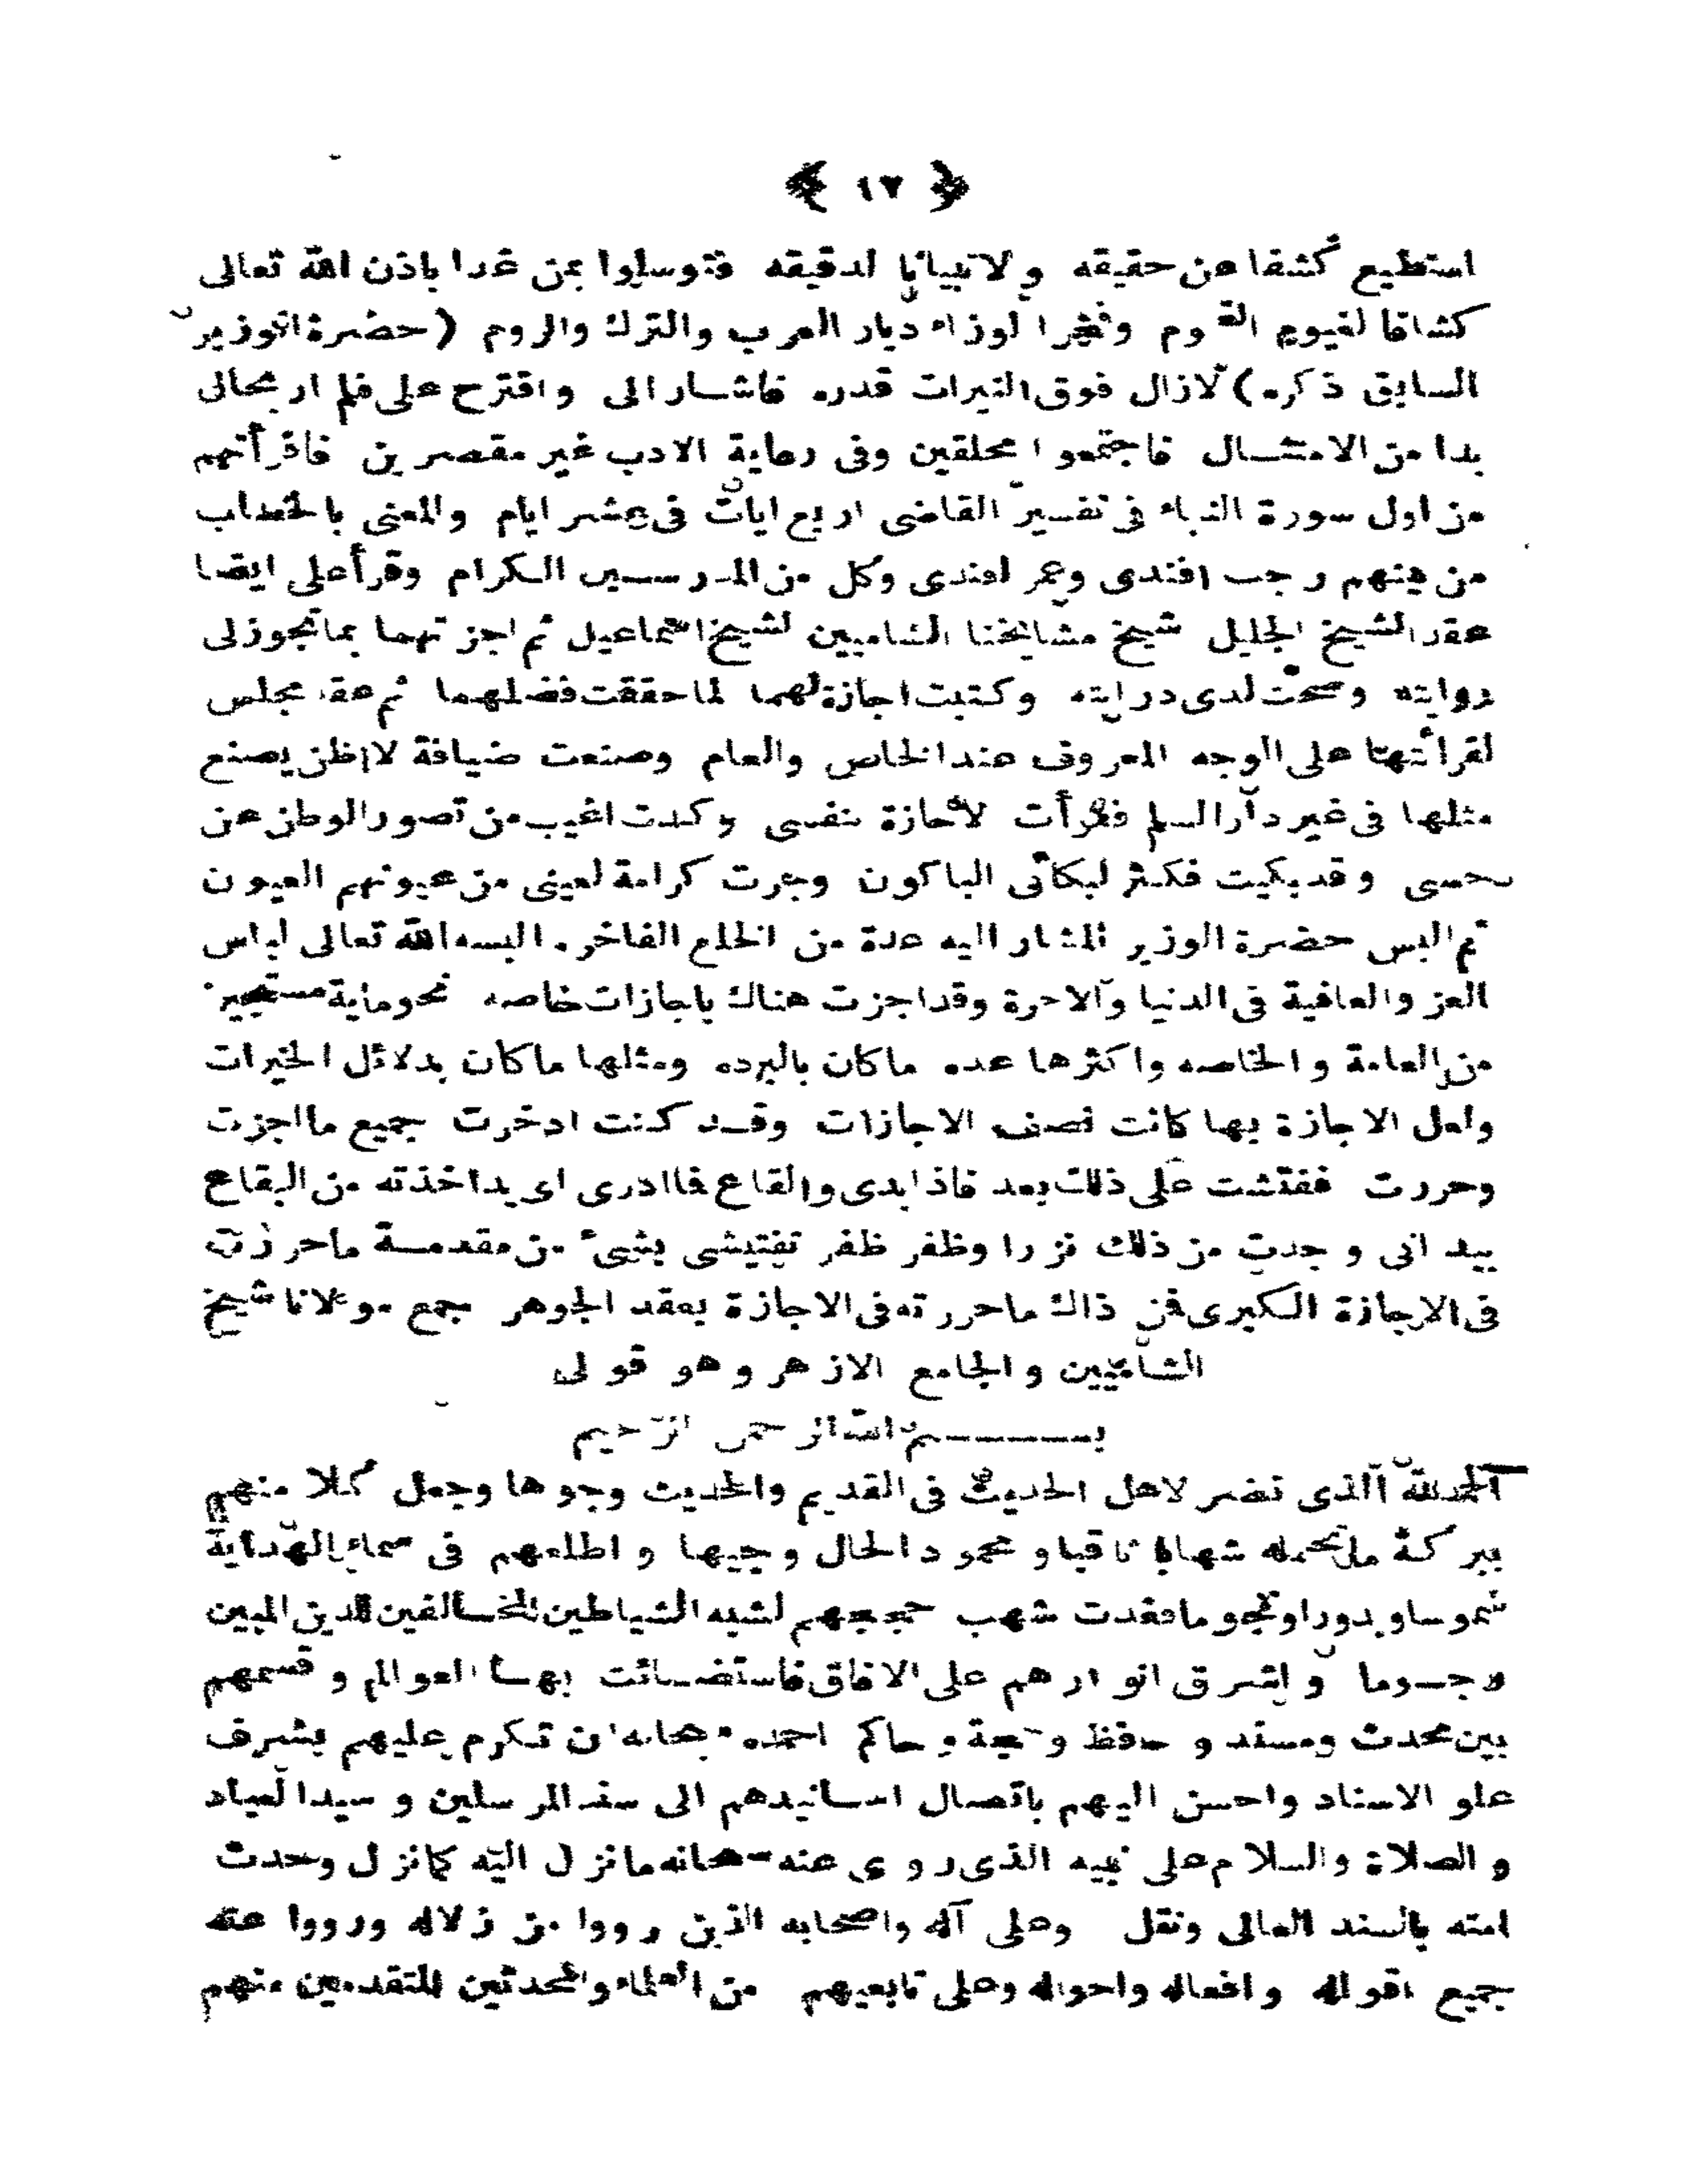 ﴿ ١٧ ﴾
استطيع كشفا عن حقيقه ولا تبيانا لدقيقه فتوسلوا بمن غدا باذن الله تعالى
كشافا لغيوم الغموم وفخرا لوزراء ديار العرب والترك والروم (حضرة الوزير
السابق ذكره) لازال فوق النيرات قدره فاشار الى واقترح على فلم ار بحالى
بدا من الامتثال فاجتمعوا محلقين وفى رعاية الادب غير مقصرين فاقرأتهم
من اول سورة النباء فى تفسير القاضى اربع ايات فى عشر ايام والمعنى بالخطاب
من بينهم رجب افندى وعمر افندى وكل من المدرسين الكرام وقرأ على ايضا
عقد الشيخ الجليل شيخ مشايخنا الشاميين الشيخ اسماعيل ثم اجزتهما بما تجوز لى
روايته وصحت لدى درايته وكتبت اجازة لهما لما حققت فضلهما ثم عقد مجلس
لقرأتها على الوجه المعروف عند الخاص والعام وصنعت ضيافة لا اظن يصنع
مثلها فى غير دار السلم فقرأت الاجازة بنفسى وكدت اغيب من تصور الوطن عن
حسى وقد بكيت فكثر لبكائى الباكون وجرت كرامة لعينى من عيونهم العيون
ثم البس حضرة الوزير المشار اليه عدة من الخلع الفاخره البسه الله تعالى لباس
العز والعافية فى الدنيا والاخرة وقد اجزت هناك باجازات خاصه نحو ماية مستجير
من العامة والخاصه واكثرها عده ماكان بالبرده ومثلها ماكان بدلائل الخيرات
ولعل الاجازة بها كانت نصف الاجازات وقد كنت ادخرت جميع ما اجزت
وحررت ففتشت على ذلك بعد فاذا يدى والقاع فما ادرى اى يد اخذته من البقاع
بيد انى وجدت من ذلك نزرا وظفر ظفر تفتيشى بشئ من مقدمة ما حررت
فى الاجازة الكبرى فمن ذاك ما حررته فى الاجازة بعقد الجوهر جمع مولانا شيخ
الشاميين والجامع الازهر وهو قولى
بسم الله الرحمن الرحيم
الحمد لله الذى نضر لاهل الحديث فى القديم والحديث وجوها وجعل كلا منهم
ببركة ما تحمله شهابا ثاقبا ومحمود الحال وجيها واطلعهم فى سماء الهداية
شموسا وبدورا ونجوما فغدت شهب حججهم لشبه الشياطين المخالفين للدين المبين
رجوما واشرق انوارهم على الافاق فاستضائت بها العوالم وقسمهم
بين محدث ومسند وحافظ وحجة وحاكم احمده سبحانه ان تكرم عليهم بشرف
علو الاسناد واحسن اليهم باتصال اسانيدهم الى سند المرسلين وسيد العباد
والصلاة والسلام على نبيه الذى روى عنه سبحانه ما نزل اليه كما نزل وحدث
امته بالسند العالى ونقل وعلى آله واصحابه الذين رووا من زلاله ورووا عنه
جميع اقواله وافعاله واحواله وعلى تابعيهم من العلماء والمحدثين المتقدمين منهم